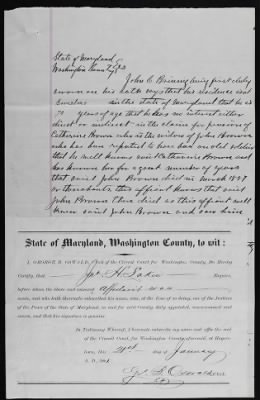 State of Maryland
Washington County
John C Brining being first duly
sworn on his oath says that his residence and
in the state of Maryland that he is
70 years of age that he has no interest either
direct or indirect in the claim for pension of
Catharine Brown who is the widow of John Brown
who has been reported to have been an old soldier
that he well knows said Catharine Brown and
has known her for a great number of years
that said John Brown died in march 1897
or thereabouts, this affiant knows that said
John Brown is dead as this affiant well
knew said John Brown and saw him
State of Maryland, Washington County, to wit:
I, GEORGE B. OSWALD, Clerk of the Circuit Court for Washington County, Do Hereby
Certify, that Jno H Lakin Esquire,
before whom the above and annexed affidavit was
made, and who hath thereunto subscribed his name, was, at the time of so doing, one of the Justices
of the Peace of the State of Maryland, in and for said County duly appointed, commissioned and
sworn, and that his signature is genuine.
In Testimony Whereof, I hereunto subscribe my name and affix the seal
of the Circuit Court for Washington County aforesaid, at Hagers-
town, this 21st day of January
A. D.
Geo. B. Oswald
Clerk